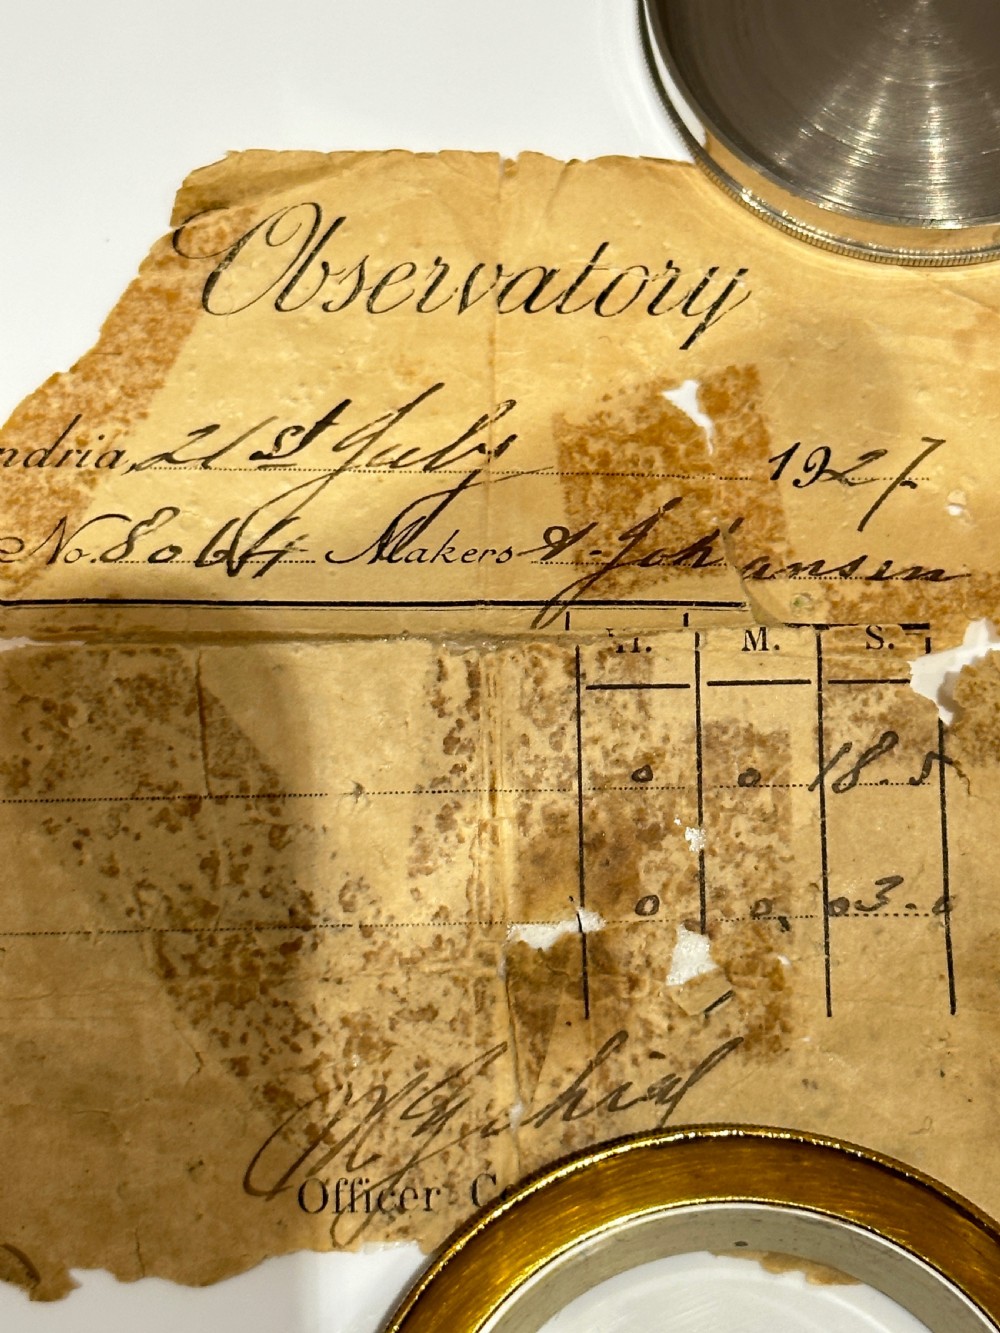 Observatory
ndria, 21st July 1927
No. 8064 Makers A. Johansen
H. M. S.
0 0 18.5
0 0 03.0
Officer